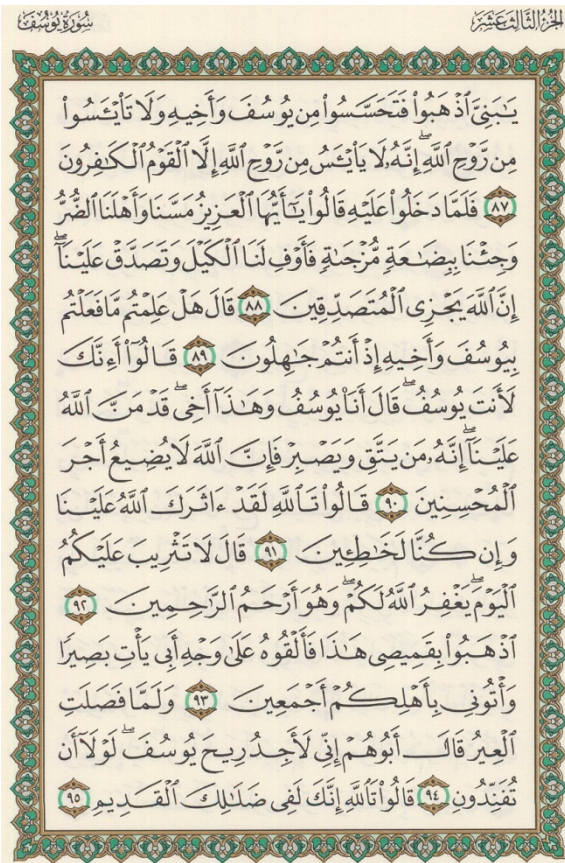 الجزء الثالث عشر سورة يوسف
يَٰبَنِيَّ ٱذْهَبُوا۟ فَتَحَسَّسُوا۟ مِن يُوسُفَ وَأَخِيهِ وَلَا تَا۟يْـَٔسُوا۟
مِن رَّوْحِ ٱللَّهِ ۖ إِنَّهُۥ لَا يَا۟يْـَٔسُ مِن رَّوْحِ ٱللَّهِ إِلَّا ٱلْقَوْمُ ٱلْكَٰفِرُونَ
٨٧ فَلَمَّا دَخَلُوا۟ عَلَيْهِ قَالُوا۟ يَٰٓأَيُّهَا ٱلْعَزِيزُ مَسَّنَا وَأَهْلَنَا ٱلضُّرُّ
وَجِئْنَا بِبِضَٰعَةٍ مُّزْجَىٰةٍ فَأَوْفِ لَنَا ٱلْكَيْلَ وَتَصَدَّقْ عَلَيْنَآ ۖ
إِنَّ ٱللَّهَ يَجْزِى ٱلْمُتَصَدِّقِينَ ٨٨ قَالَ هَلْ عَلِمْتُم مَّا فَعَلْتُم
بِيُوسُفَ وَأَخِيهِ إِذْ أَنتُمْ جَٰهِلُونَ ٨٩ قَالُوٓا۟ أَءِنَّكَ
لَأَنتَ يُوسُفُ ۖ قَالَ أَنَا۠ يُوسُفُ وَهَٰذَآ أَخِى ۖ قَدْ مَنَّ ٱللَّهُ
عَلَيْنَآ ۖ إِنَّهُۥ مَن يَتَّقِ وَيَصْبِرْ فَإِنَّ ٱللَّهَ لَا يُضِيعُ أَجْرَ
ٱلْمُحْسِنِينَ ٩٠ قَالُوا۟ تَٱللَّهِ لَقَدْ ءَاثَرَكَ ٱللَّهُ عَلَيْنَا
وَإِن كُنَّا لَخَٰطِـِٔينَ ٩١ قَالَ لَا تَثْرِيبَ عَلَيْكُمُ
ٱلْيَوْمَ ۖ يَغْفِرُ ٱللَّهُ لَكُمْ ۖ وَهُوَ أَرْحَمُ ٱلرَّٰحِمِينَ ٩٢
ٱذْهَبُوا۟ بِقَمِيصِى هَٰذَا فَأَلْقُوهُ عَلَىٰ وَجْهِ أَبِى يَأْتِ بَصِيرًا
وَأْتُونِى بِأَهْلِكُمْ أَجْمَعِينَ ٩٣ وَلَمَّا فَصَلَتِ
ٱلْعِيرُ قَالَ أَبُوهُمْ إِنِّى لَأَجِدُ رِيحَ يُوسُفَ ۖ لَوْلَآ أَن
تُفَنِّدُونِ ٩٤ قَالُوا۟ تَٱللَّهِ إِنَّكَ لَفِى ضَلَٰلِكَ ٱلْقَدِيمِ ٩٥